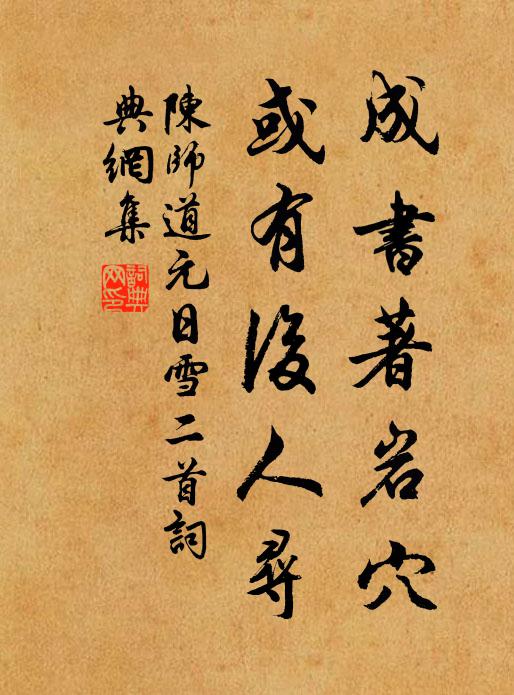 成書著岩穴
或有後人尋
陳師道元日雪二首詞
典網集
詞典网印